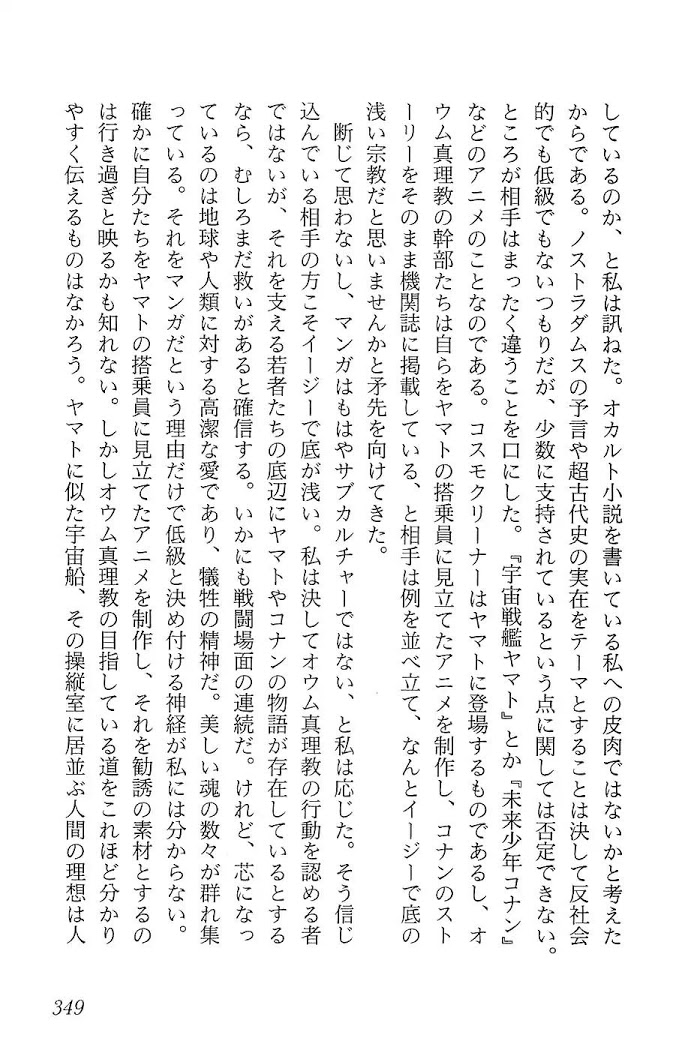 しているのか、と私は訊ねた。オカルト小説を書いている私への皮肉ではないかと考えた
からである。ノストラダムスの予言や超古代史の実在をテーマとすることは決して反社会
的でも低級でもないつもりだが、少数に支持されているという点に関しては否定できない。
ところが相手はまったく違うことを口にした。『宇宙戦艦ヤマト』とか『未来少年コナン』
などのアニメのことなのである。コスモクリーナーはヤマトに登場するものであるし、オ
ウム真理教の幹部たちは自らをヤマトの搭乗員に見立てたアニメを制作し、コナンのスト
ーリーをそのまま機関誌に掲載している、と相手は例を並べ立て、なんとイージーで底の
浅い宗教だと思いませんかと矛先を向けてきた。
断じて思わないし、マンガはもはやサブカルチャーではない、と私は応じた。そう信じ
込んでいる相手の方こそイージーで底が浅い。私は決してオウム真理教の行動を認める者
ではないが、それを支える若者たちの底辺にヤマトやコナンの物語が存在しているとする
なら、むしろまだ救いがあると確信する。いかにも戦闘場面の連続だ。けれど、芯になっ
ているのは地球や人類に対する高潔な愛であり、犠牲の精神だ。美しい魂の数々が群れ集
っている。それをマンガだという理由だけで低級と決め付ける神経が私には分からない。
確かに自分たちをヤマトの搭乗員に見立てたアニメを制作し、それを勧誘の素材とするの
は行き過ぎと映るかも知れない。しかしオウム真理教の目指している道をこれほど分かり
やすく伝えるものはなかろう。ヤマトに似た宇宙船、その操縦室に居並ぶ人間の理想は人
349